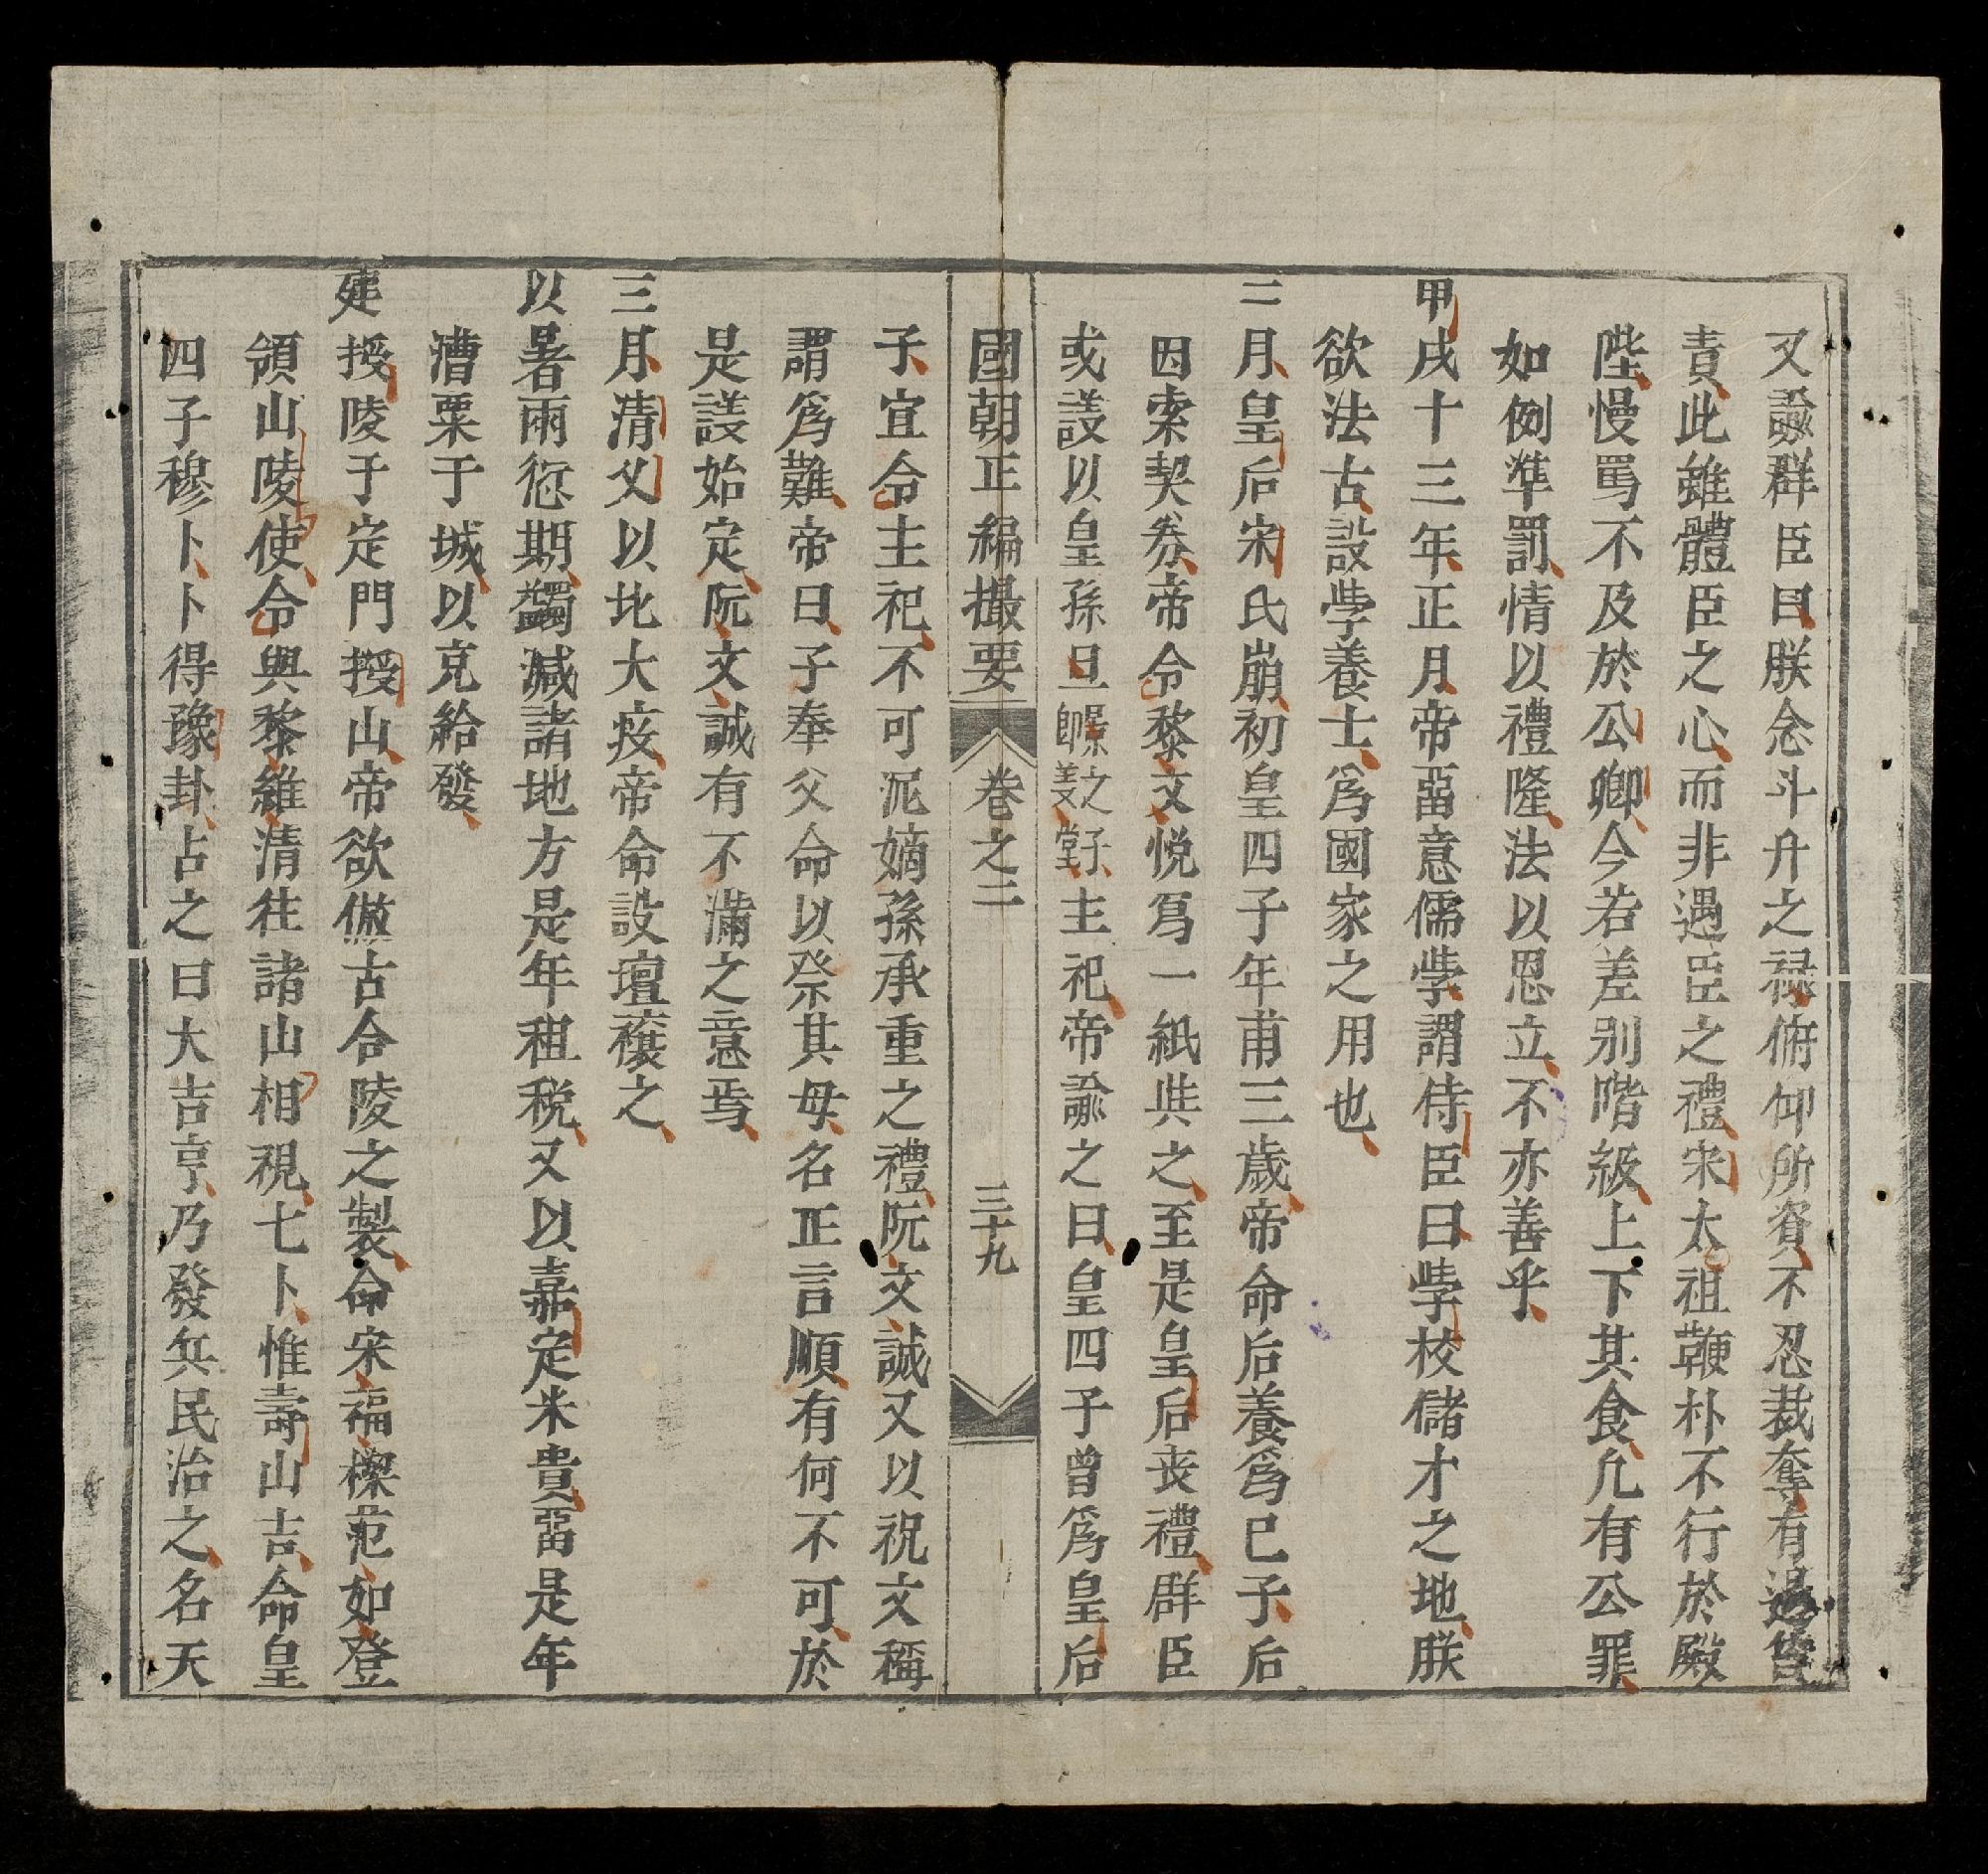 又諭群臣曰朕念斗升之祿俯仰所資不忍裁奪有過
責此雖體臣之心而非遇臣之禮宋太祖鞭朴不行於殿
陛慢罵不及於公卿今若差别階級上下其食凢有公罪
如例準罰情以禮隆法以恩立不亦善乎
甲戌十三年正月帝畱意儒學謂侍臣曰學校儲才之地朕
欲法古設學養士爲國家之用也
二月皇后宋氏崩初皇四子年甫三歲帝命后養爲己子后
因索契券帝令黎文悅寫一紙與之至是皇后丧禮群臣
或議以皇孫旦主祀帝諭之曰皇四子曾爲皇后
國朝正編撮要 卷之二 三十九
子宜令主祀不可泥嫡孫承重之禮阮文誠又以祝文稱
謂爲難帝曰子奉父命以祭其母名正言順有何不可於
是議始定阮文誠有不滿之意焉
三月清乂以北大疫帝命設壇禳之
以暑雨愆期蠲減諸地方是年租税又以嘉定米貴畱是年
漕粟于城以充給發
建授陵于定門授山帝欲倣古合陵之製命宋福樑范如登
領山陵使令與黎維清往諸山相視七卜惟壽山吉命皇
四子穆卜卜得豫卦占之曰大吉亨乃發兵民治之名天